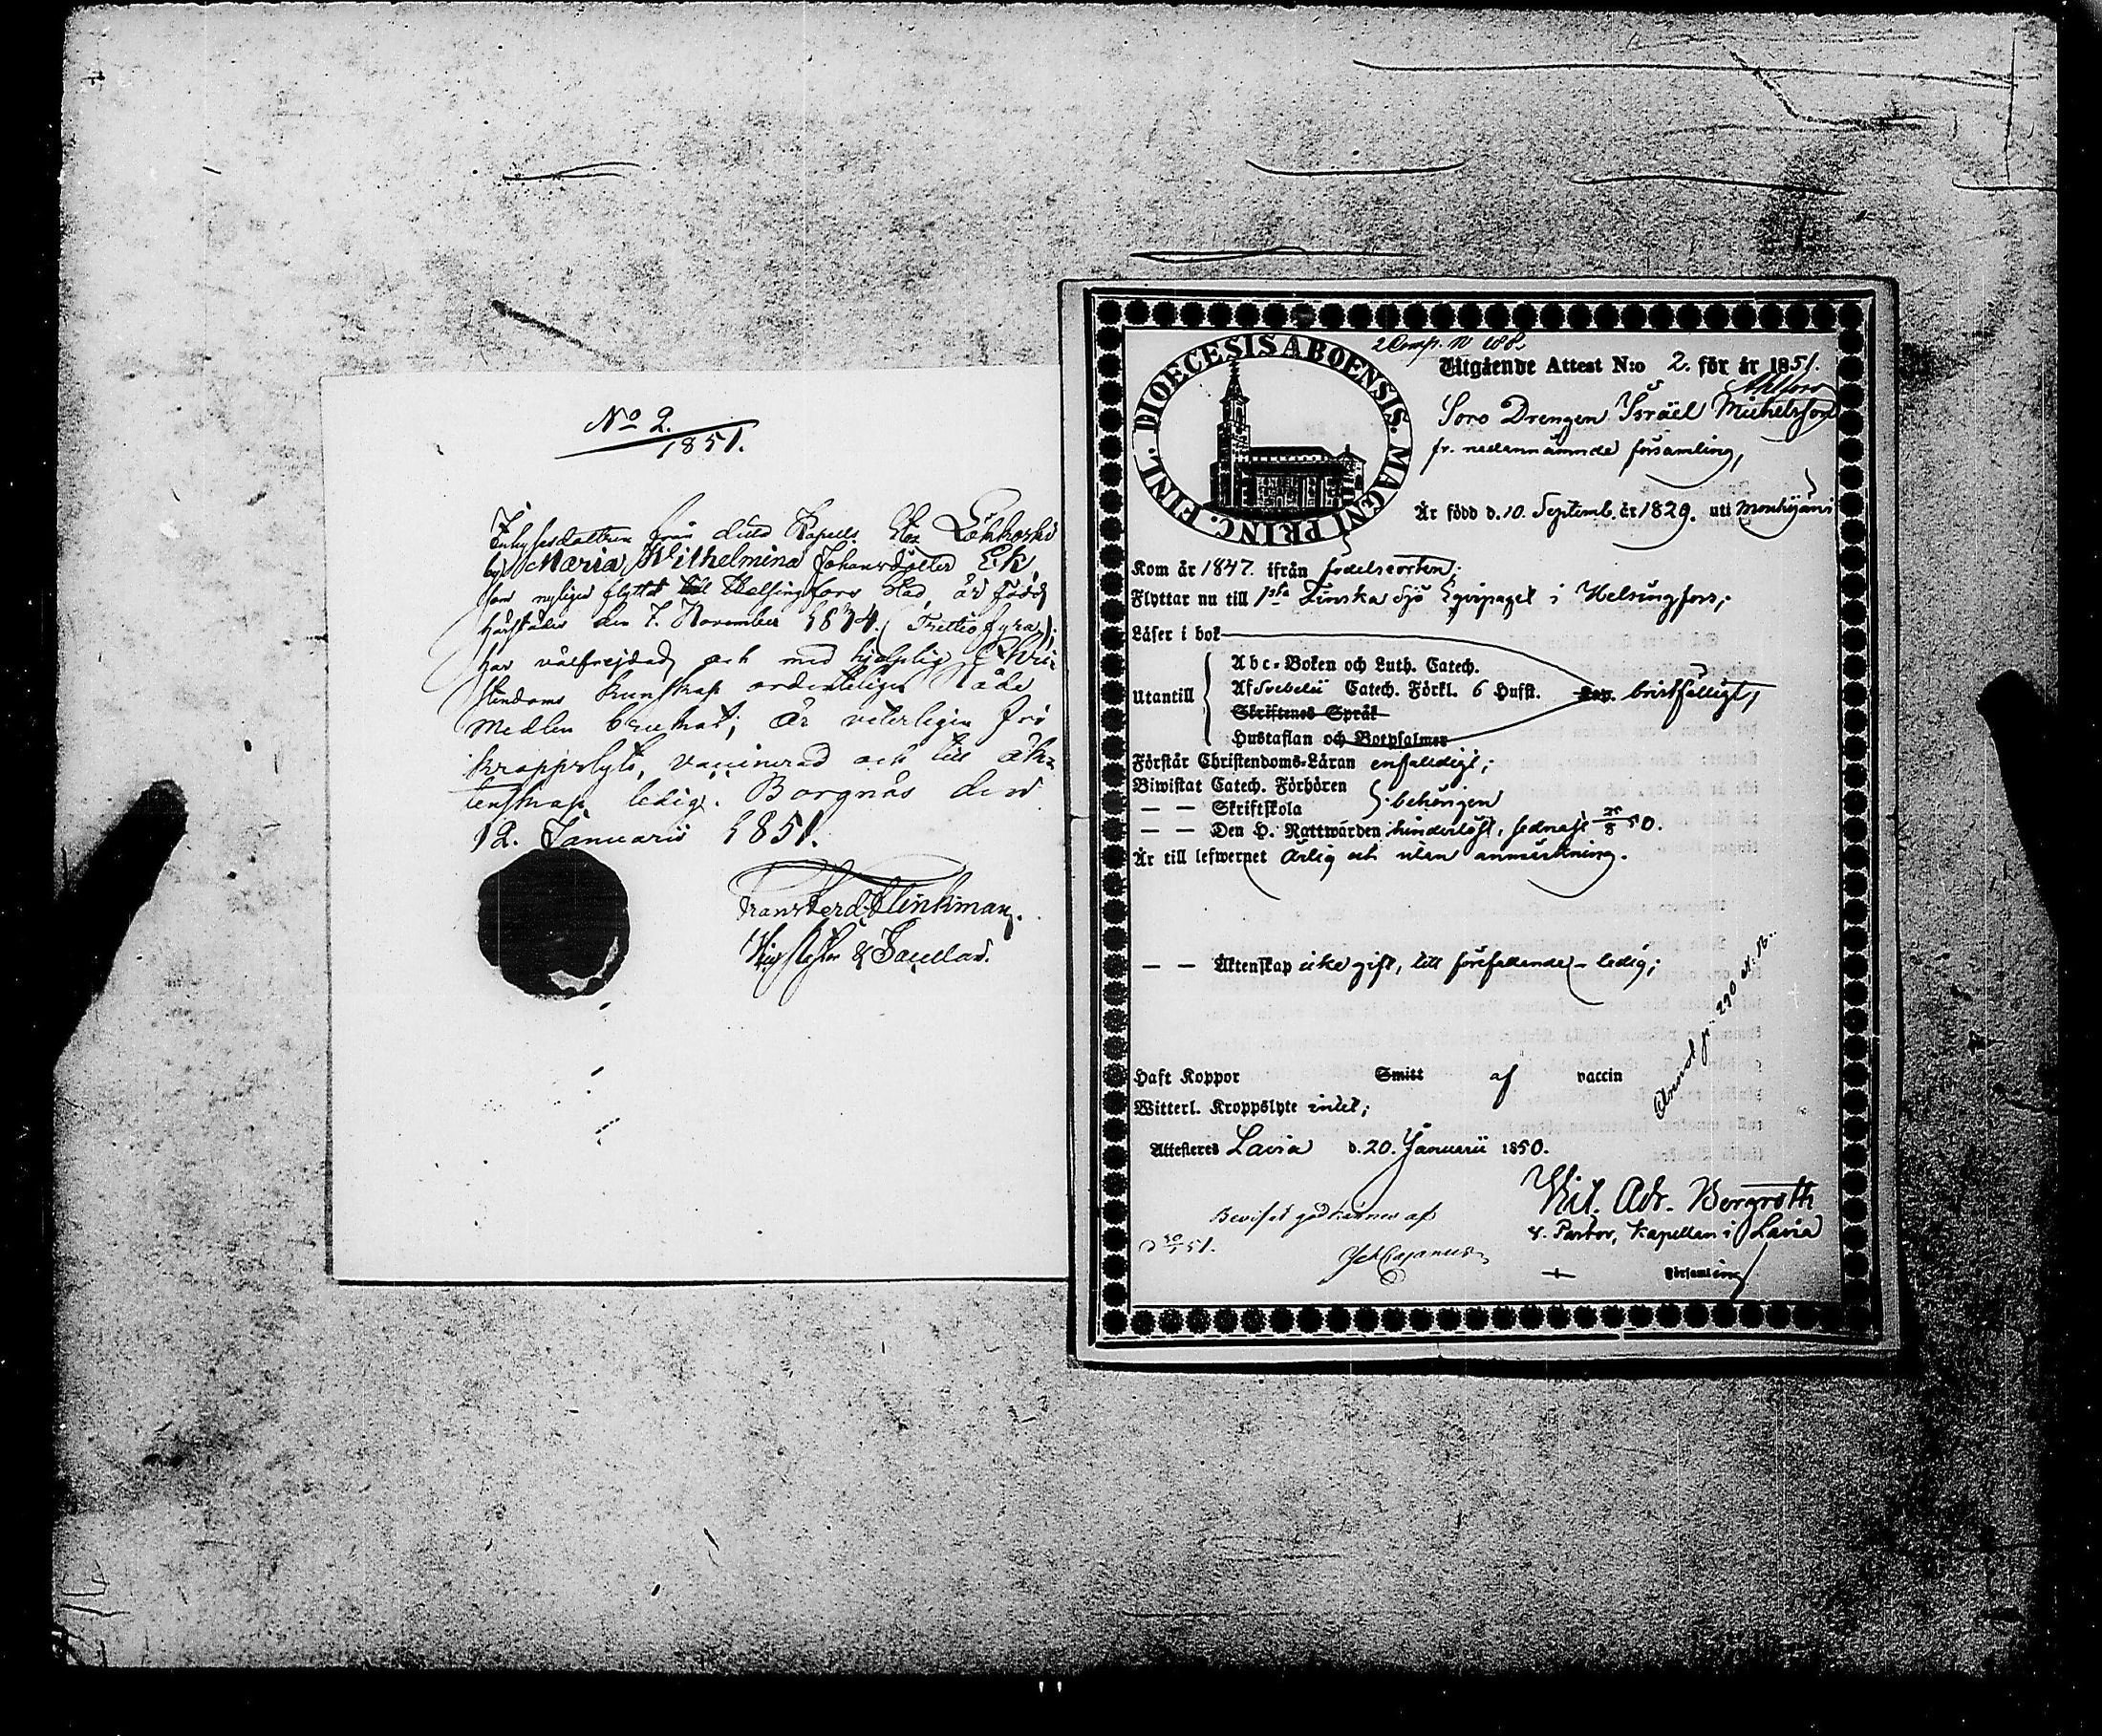 No 2.
1851.
Inhysesdottren från detta Kapells
by Maria Wilhelmina Johansdotter Ek,
som nyligen flyttat till Helsingfors Stad, är född
härstädes den 7. November 1834. (Trettiofyra);
har välfrejdad och med hjelplig Chri-
stendoms kunskap ordenteligen Nåde
Medlen brukat; är veterligen fri
kroppslyte, vaccinerad och till äk-
tenskap ledig. Borgnäs den
12. Januarii 1851.
Frans Ferd. Flinkman.
DIOECESIS ABOENSIS. MAGNI PRINC. FINL.
2 Comp. N 188.
Utgående Attest N:o 2. för år 1851.
Soro Drengen Isräel Michelsson
fr. nedannämnde församling,
Är född d. 10. Septemb. år 1829. uti Mouhijärvi
Kom år 1847. ifrån födelseorten;
Flyttar nu till 1sta Finska Sjö Eqvipaget i Helsingfors;
Läser i bok
Utantill
Abc-Boken och Luth. Catech.
Af Svebelii Catech. Förkl. 6 Hufst. bristfälligt,
Skriftenes Språk
Hustaflan och Botpsalmer
Förstår Christendoms-Läran enfaldigt;
Biwistat Catech. Förhören
— — Skriftskola behörigen
— — Den H. Nattwarden hinderlöst, sednast 25/8 50.
Är till lefwernet ärlig och utan anmärkning.
— — Äktenskap icke gift, till förefallande – ledig;
Haft Koppor Smitt af vaccin
Witterl. Kroppslyte intet;
Annot. p. 290 N. B.
Attesteres Lavia d. 20. Januarii 1850.
Vict. Adr. Bergroth
v. Pastor, Kapellan i Lavia
Församling
Beviset godkännes af
d 30/1 51.